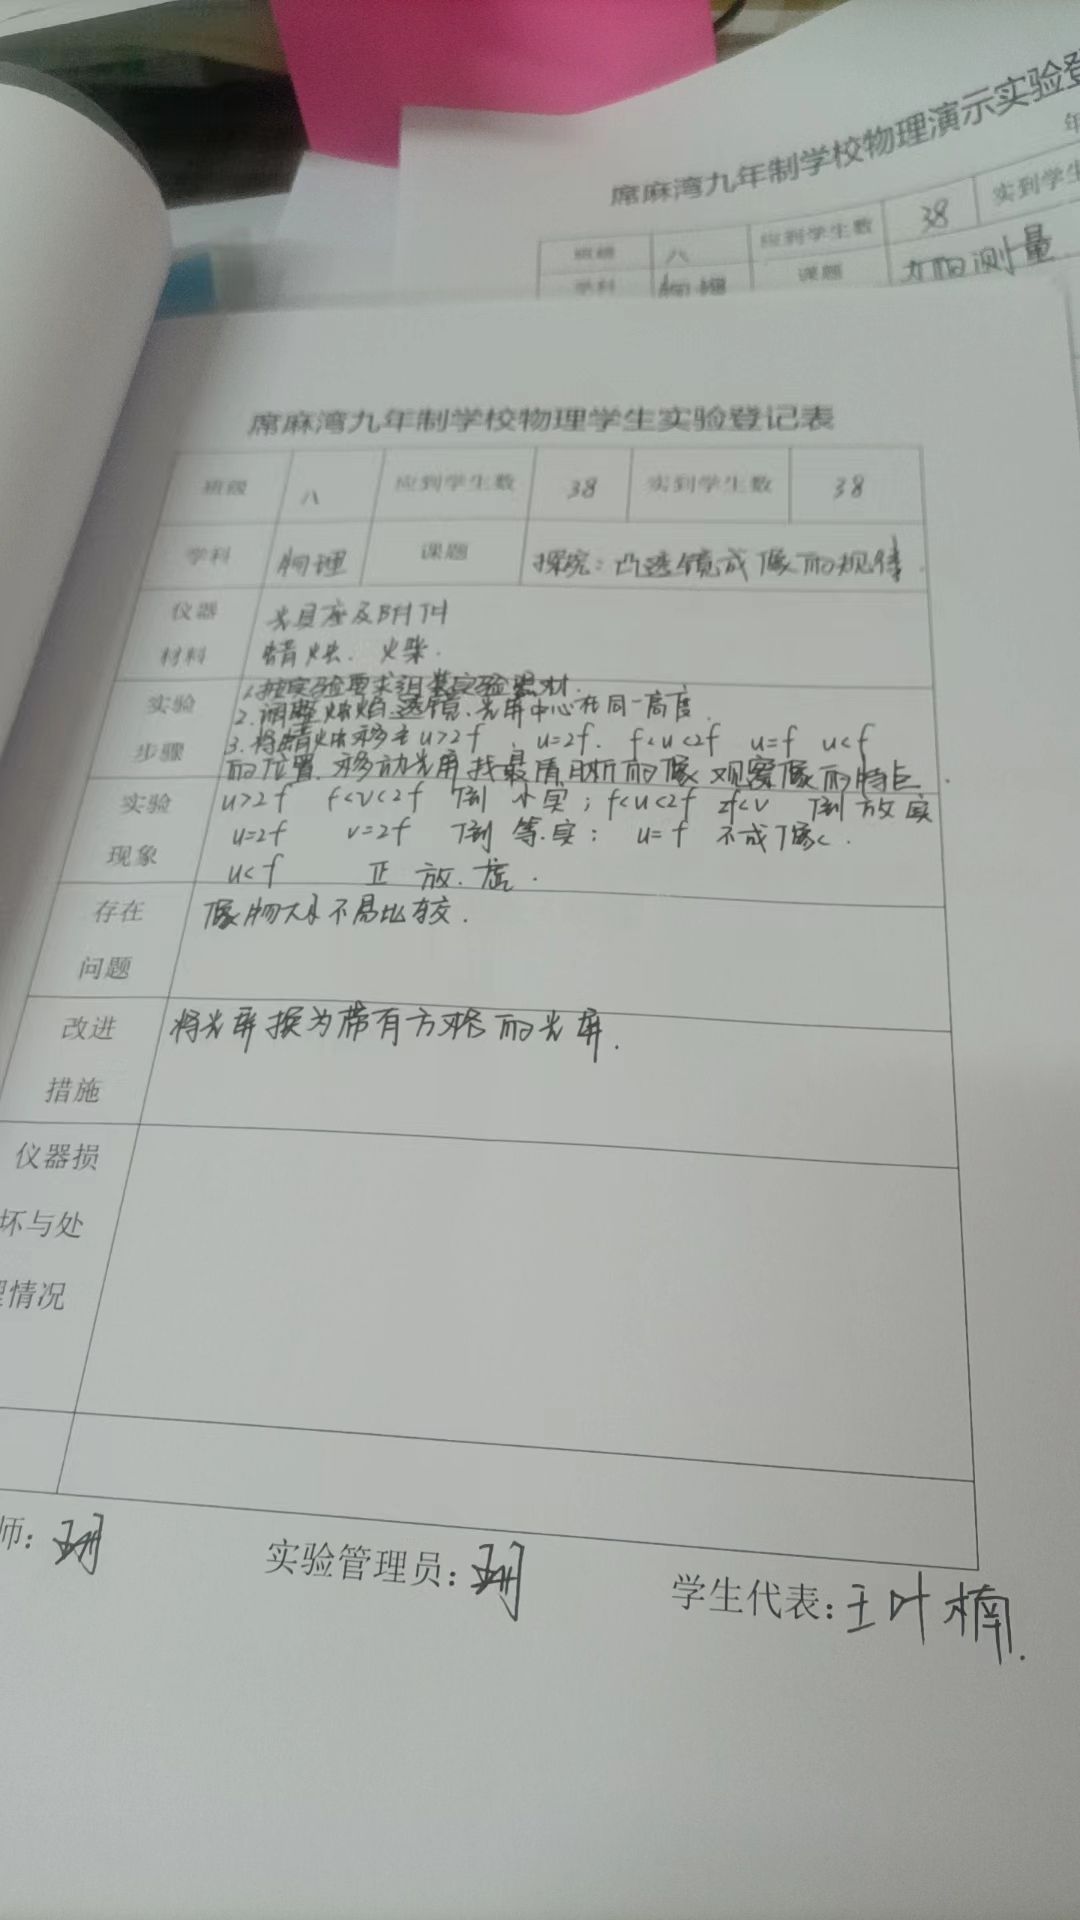 席麻湾九年制学校物理演示实验登
年
班级 八 应到学生数 38 实到学生
学科 物理 课题 电阻测量
席麻湾九年制学校物理学生实验登记表
班级 八 应到学生数 38 实到学生数 38
学科 物理 课题 探究：凸透镜成像的规律.
仪器材料
光具座及附件
蜡烛. 火柴.
实验步骤
1.按实验要求组装实验器材.
2.调整烛焰.透镜.光屏中心在同一高度.
3.将蜡烛移至u>2f. u=2f. f<u<2f u=f u<f
的位置.移动光屏找最清晰的像.观察像的特点.
实验现象
u>2f f<v<2f 倒 小 实；f<u<2f 2f<v 倒 放 实
u=2f v=2f 倒 等.实； u=f 不成像.
u<f 正 放.虚.
存在问题
像物大小不易比较.
改进措施
将光屏换为带有方格的光屏.
仪器损
坏与处
理情况
师：
实验管理员：
学生代表：王叶楠.